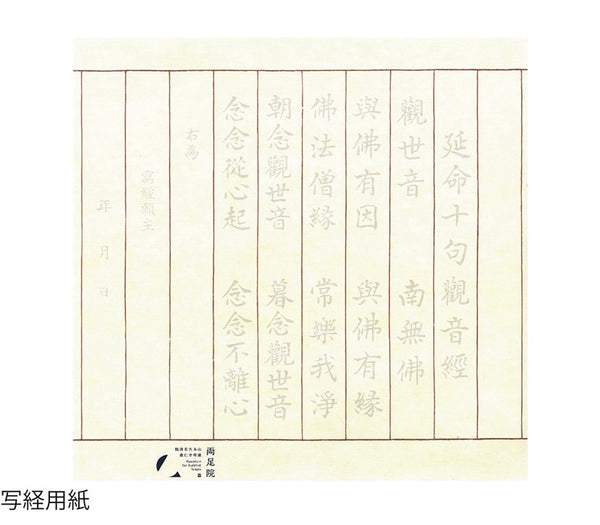 延命十句觀音經
觀世音 南無佛
與佛有因 與佛有緣
佛法僧緣 常樂我淨
朝念觀世音 暮念觀世音
念念從心起 念念不離心
右為
年 月 日
両足院
Zen Buddhist
Temple
写経用紙